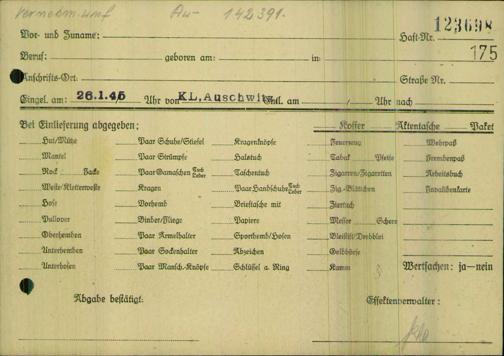 Au- 142391.
Vor- und Zuname: Haft-Nr. 123698
175
Beruf: geboren am: in:
Anschrifts-Ort: Straße Nr.
Eingel. am: 26.1.45 Uhr von KL, Auschwitz Entl. am Uhr nach
Bei Einlieferung abgegeben: Koffer Aktentasche Paket
Hut/Mütze Paar Schuhe/Stiefel Kragenknöpfe Feuerzeug Wehrpaß
Mantel Paar Strümpfe Halstuch Tabak Pfeife Fremdenpaß
Rock Jacke Paar Gamaschen Tuch Leder Taschentuch Zigarren/Zigaretten Arbeitsbuch
Weste/Kletterweste Kragen Paar Handschuhe Tuch Leder Zig.-Blättchen Invalidenkarte
Hose Vorhemd Brieftasche mit Ziertuch
Pullover Binder/Fliege Papiere Messer Schere
Oberhemden Paar Ärmelhalter Sporthemd/Hosen Bleistift/Drehblei
Unterhemden Paar Sockenhalter Abzeichen Geldbörse
Unterhosen Paar Mansch.-Knöpfe Schlüssel a. Ring Kamm Wertsachen: ja—nein
Abgabe bestätigt: Effektenverwalter: